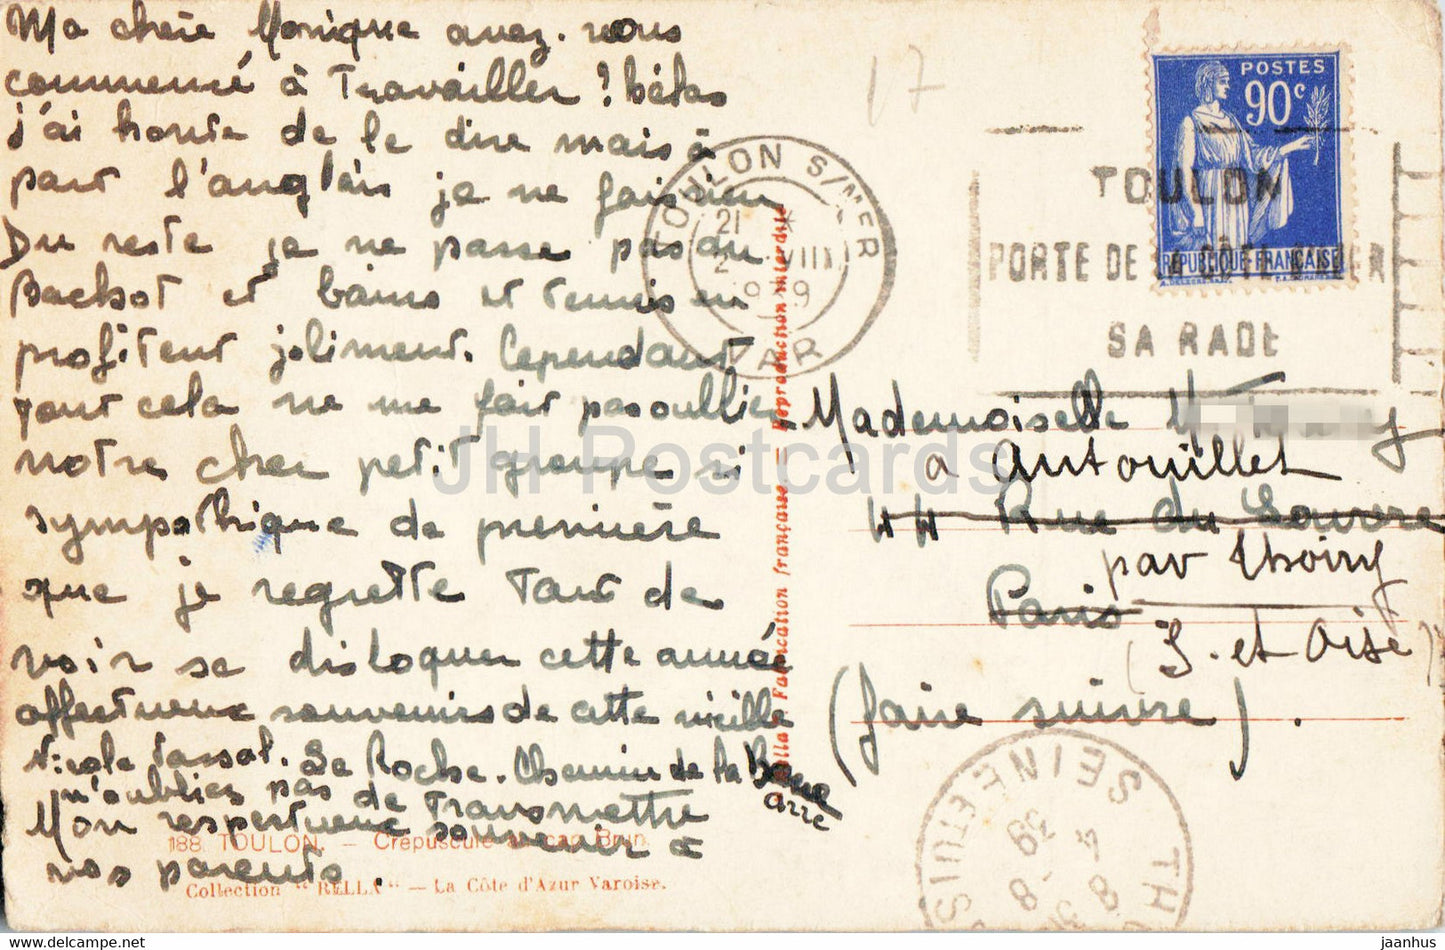 Ma chère Monique avez-vous
commencé à Travailler ? hélas
j'ai honte de le dire mais à
part l'anglais je ne fais rien
Du reste je ne passe pas au
Bachot et bains et tennis en
profitent joliment. Cependant
tout cela ne me fait pas oublier
notre cher petit groupe si
sympathique de première
que je regrette tant de
voir se disloquer cette année
affectueux souvenirs de cette vieille
Nicole Tassat. La Roche. Chemin de la Barre
arre
n'oubliez pas de Transmettre
Mon respectueux souvenir à
vos parents.
188. TOULON. — Crépuscule au cap Brun.
Collection "RELLA" — La Côte d'Azur Varoise.
Rella Fabrication française — Reproduction interdite
17
POSTES
90c
RÉPUBLIQUE FRANÇAISE
TOULON S/MER
21
1939
VAR
TOULON
PORTE DE
SA RADE
Mademoiselle
à Antouillet
44 Rue du Louvre
par Thoiry
Paris
(S. et Oise)
(faire suivre).
SEINE ET OISE
TH
8
39
JH Postcards
jaanhus — https://jhpostcards.com